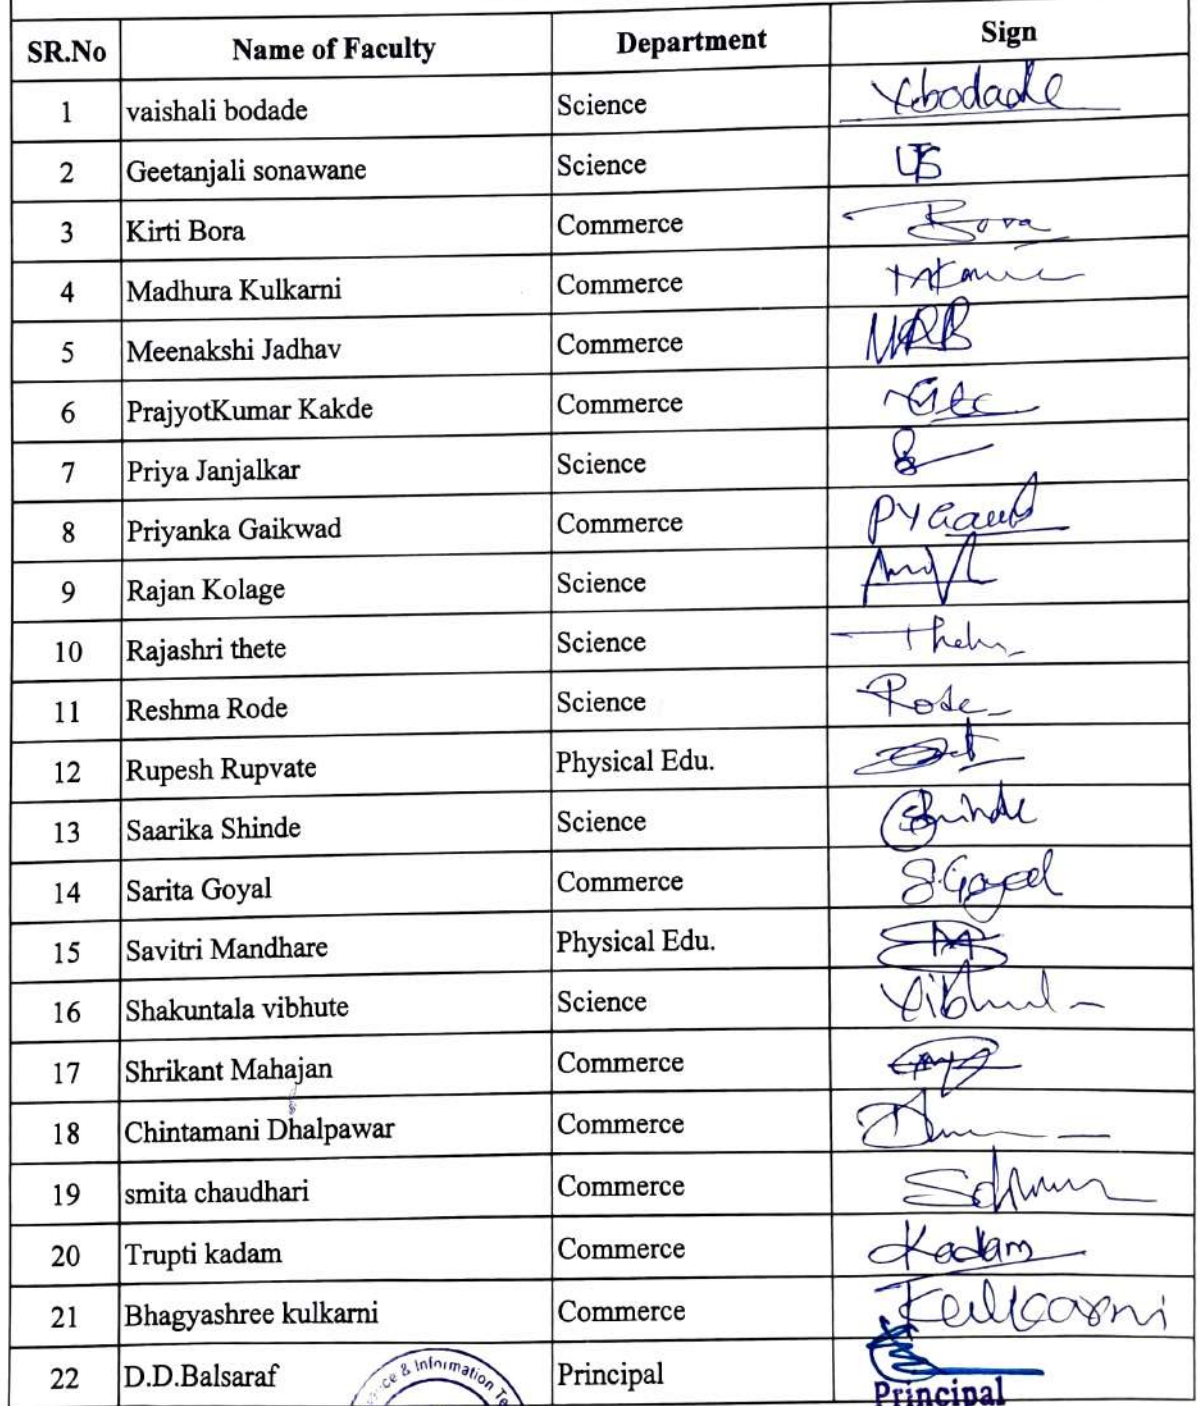 SR.No Name of Faculty Department Sign
1 vaishali bodade Science Vbodade
2 Geetanjali sonawane Science
3 Kirti Bora Commerce Bora
4 Madhura Kulkarni Commerce
5 Meenakshi Jadhav Commerce
6 PrajyotKumar Kakde Commerce
7 Priya Janjalkar Science
8 Priyanka Gaikwad Commerce
9 Rajan Kolage Science
10 Rajashri thete Science
11 Reshma Rode Science Rode
12 Rupesh Rupvate Physical Edu.
13 Saarika Shinde Science Shinde
14 Sarita Goyal Commerce S.Goyal
15 Savitri Mandhare Physical Edu.
16 Shakuntala vibhute Science
17 Shrikant Mahajan Commerce
18 Chintamani Dhalpawar Commerce
19 smita chaudhari Commerce
20 Trupti kadam Commerce Kadam
21 Bhagyashree kulkarni Commerce Kulkarni
22 D.D.Balsaraf Principal
& Information
Principal